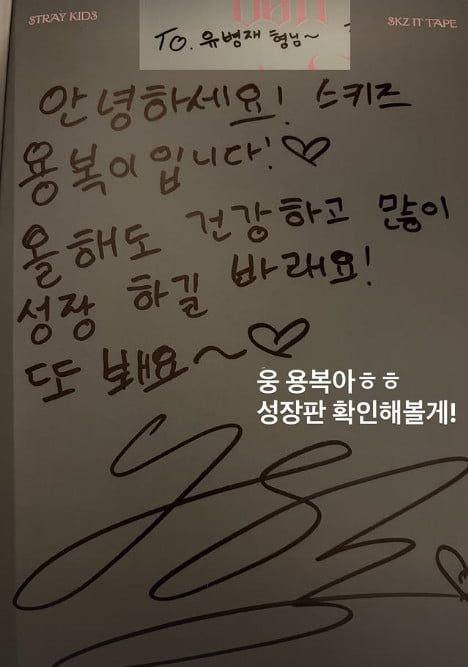 STRAY KIDS
SKZ IT TAPE
To. 유병재 형님~
안녕하세요! 스키즈
용복이입니다!♡
올해도 건강하고 많이
성장 하길 바래요!
또 봬요~♡
웅 용복아ㅎㅎ
성장판 확인해볼게!